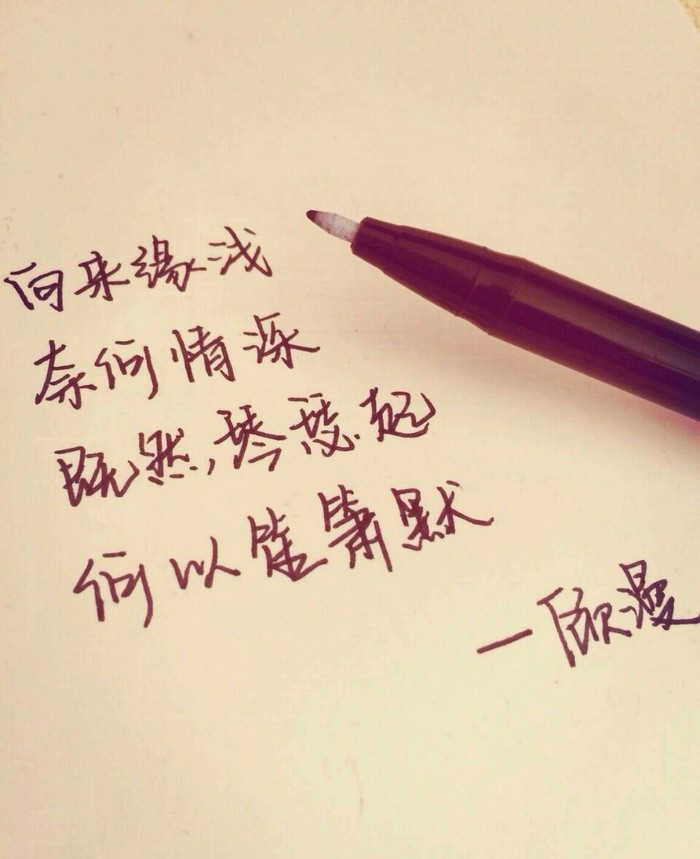 向来缘浅
奈何情深
既然,琴瑟起
何以笙箫默
—顾漫